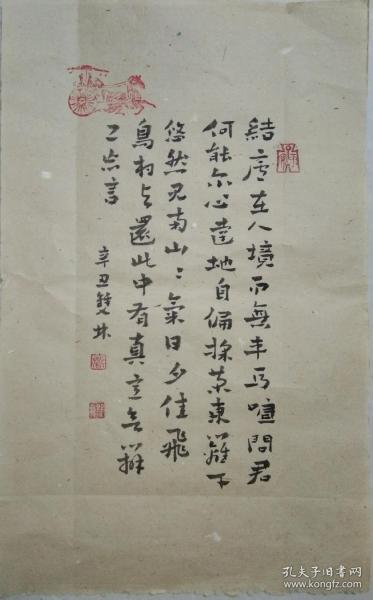 結廬在人境而無車馬喧問君
何能尔心遠地自偏採菊東籬下
悠然见南山〻氣日夕佳飛
鳥相与還此中有真意欲辯
已忘言
辛丑雙林
孔夫子旧书网
www.kongfz.com